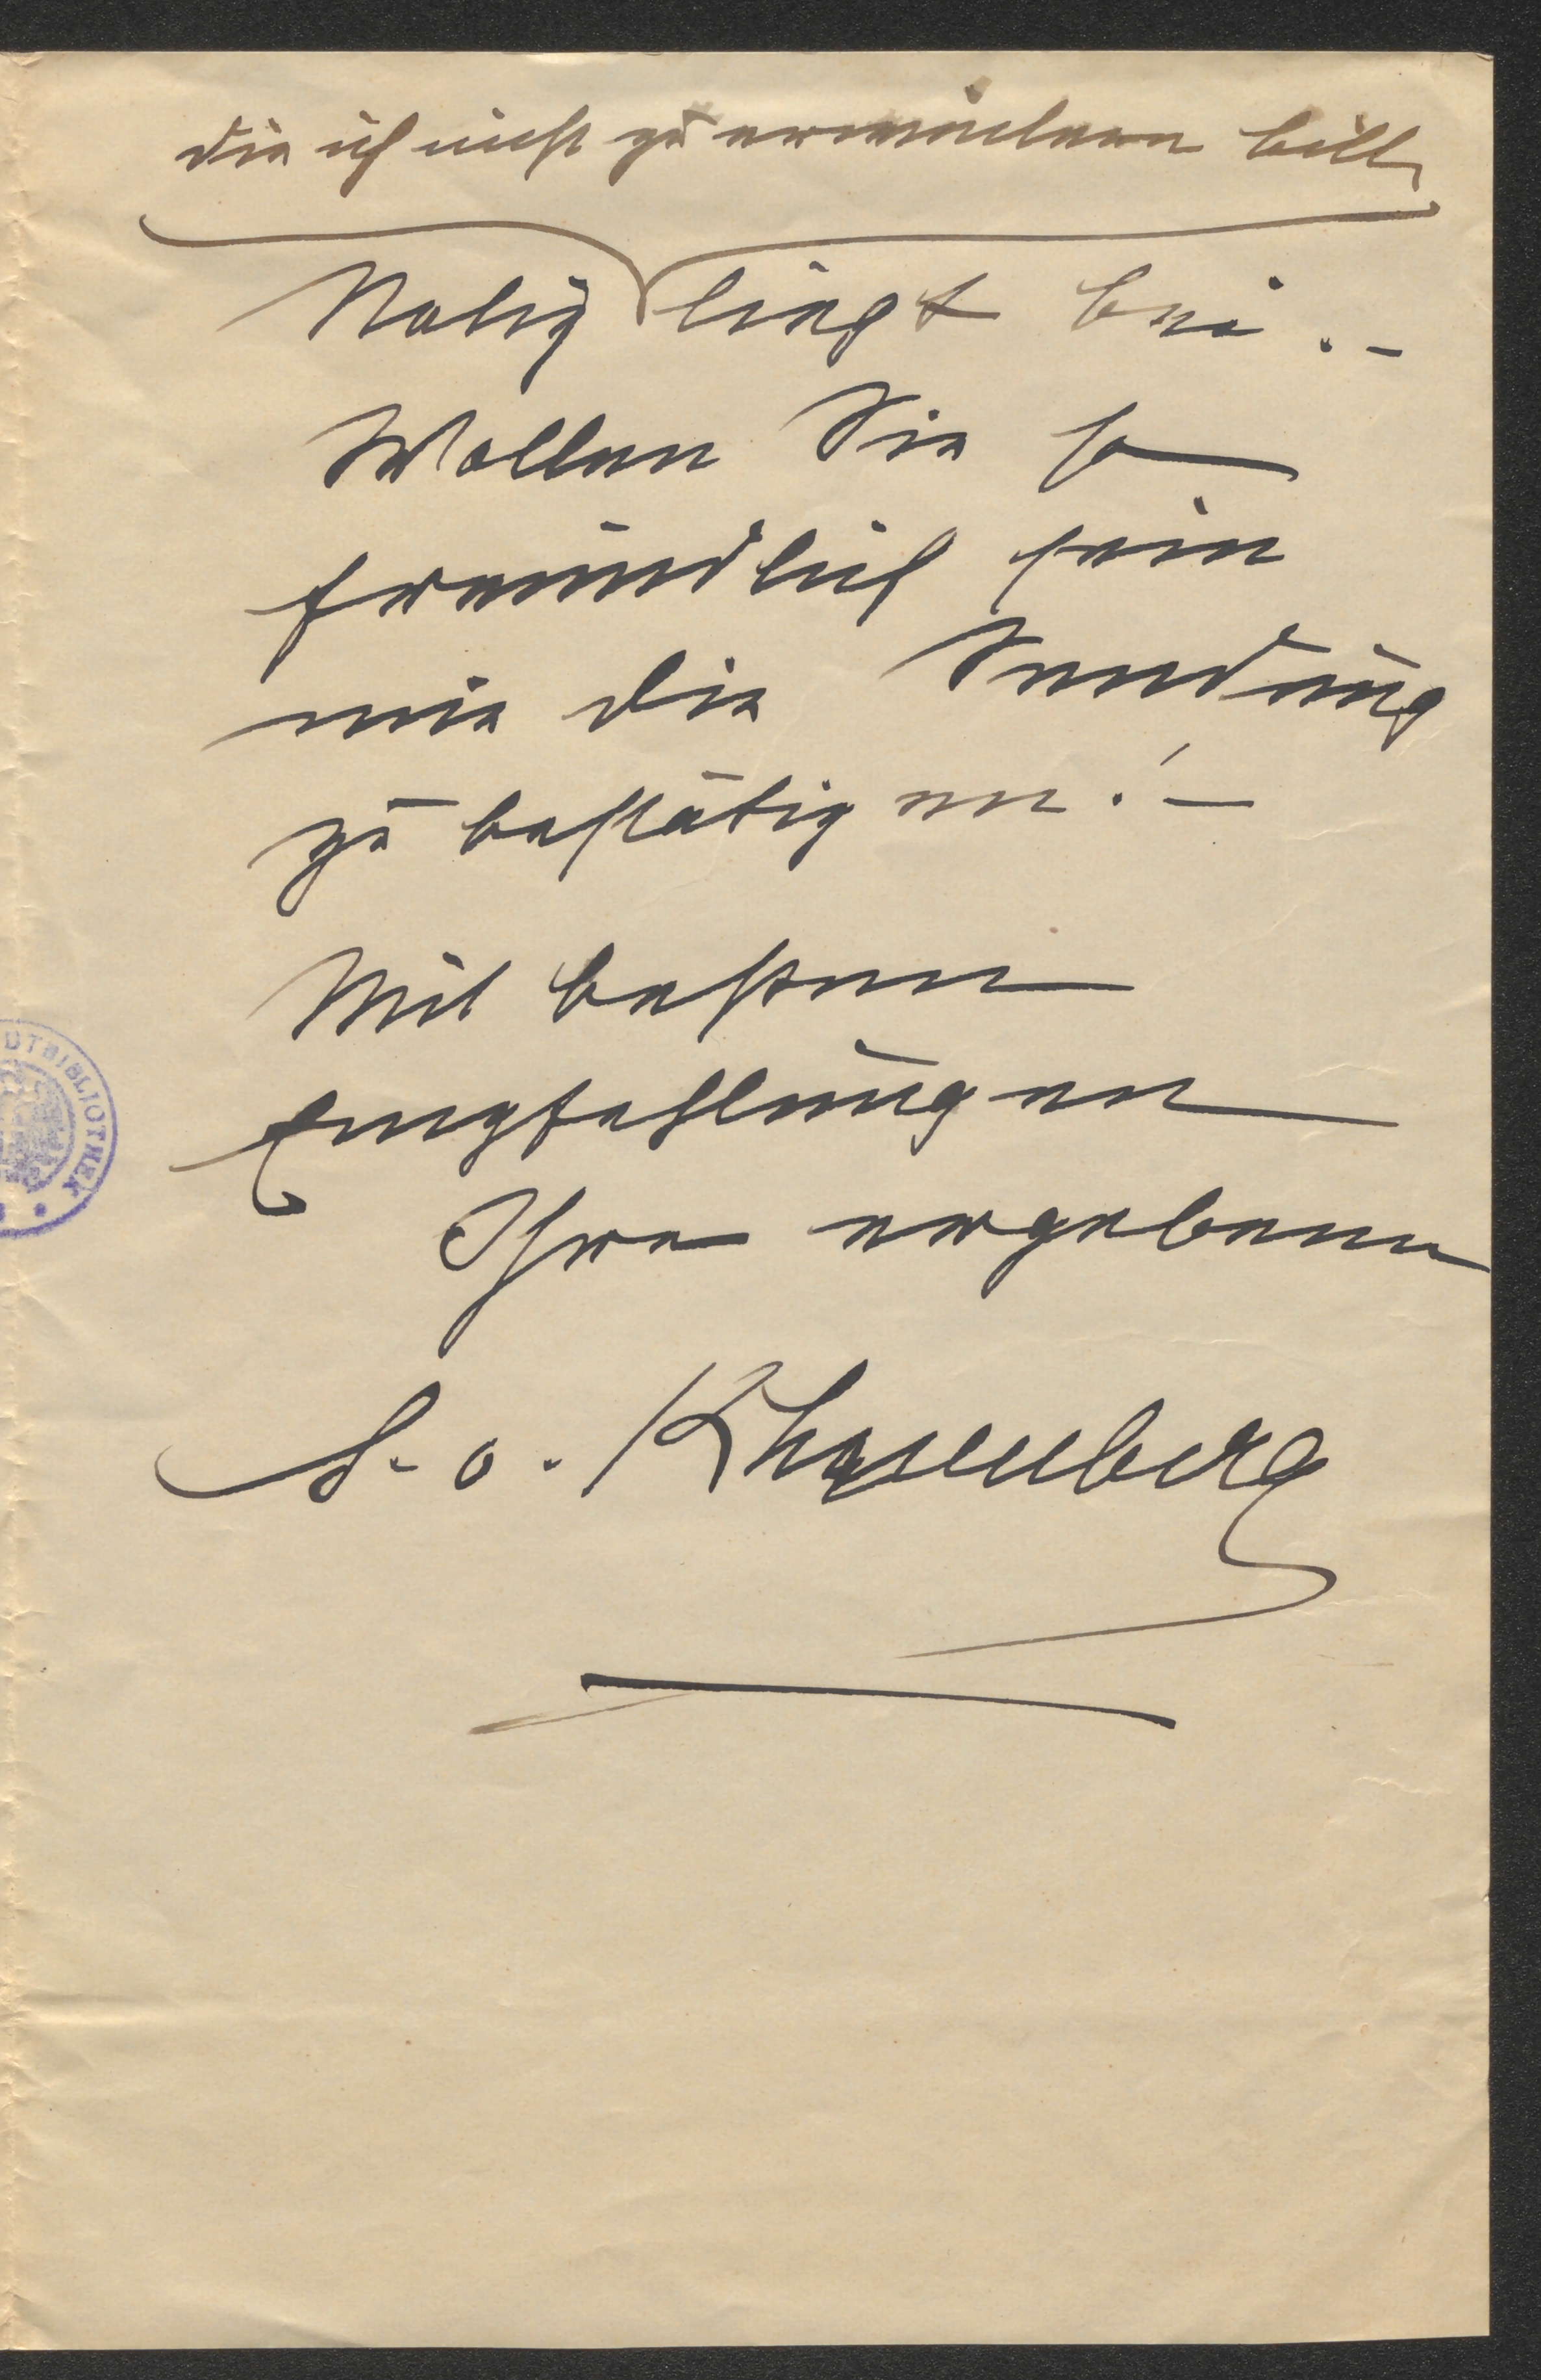 die ich nicht zu erwidern bitte,
Notiz liegt bei. –
Wollen Sie so
freundlich sein
mir die Sendung
zu bestätigen! –
Mit besten
Empfehlungen
Ihre ergebene
BIBLIOTHEK